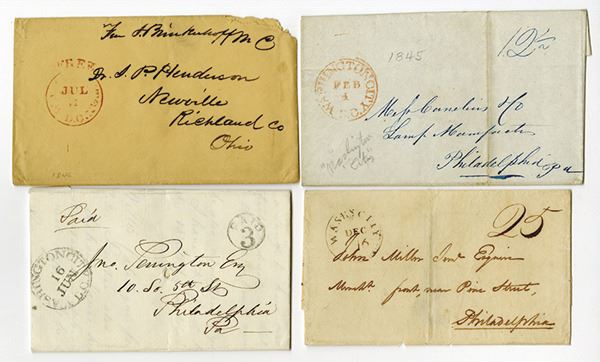 Free J Brinkerhoff M C
FREE
JUL
WASHINGTON D.C.
Dr. J. P. Henderson
Newville
Richland Co
Ohio
1845
12½
WASHINGTON CITY D.C.
FEB
4
Messrs Cornelius & Co
Lamp Manufacts
Philadelphia Pa
Washington
City
Paid
PAID
3
WASHINGTON CITY D.C.
16
JUN
Jno. Penington Esq
10. So. 5th St
Philadelphia
Pa
25
WASHN CITY
DEC
16
John Miller Junr Esquire
Mercht. front, near Pine Street,
Philadelphia